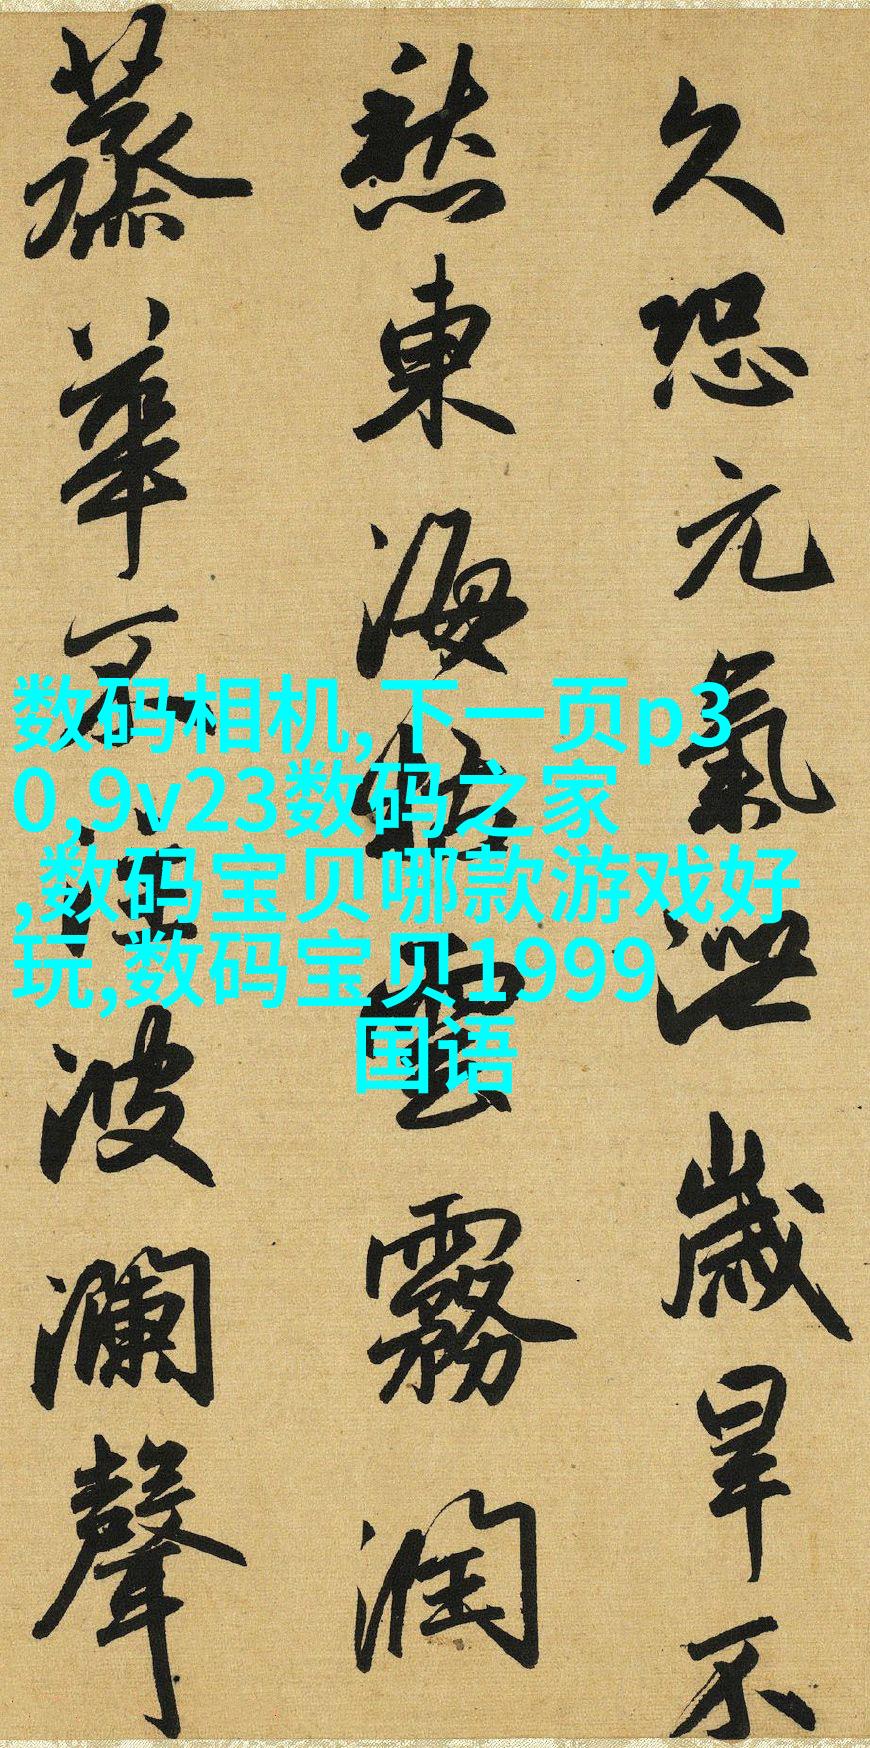 久恐元氣泄歲旱不
愁東海枯雲霧潤
蒸華不注波瀾聲
数码相机,下一页p3
0,9v23数码之家
,数码宝贝哪款游戏好
玩,数码宝贝1999
国语